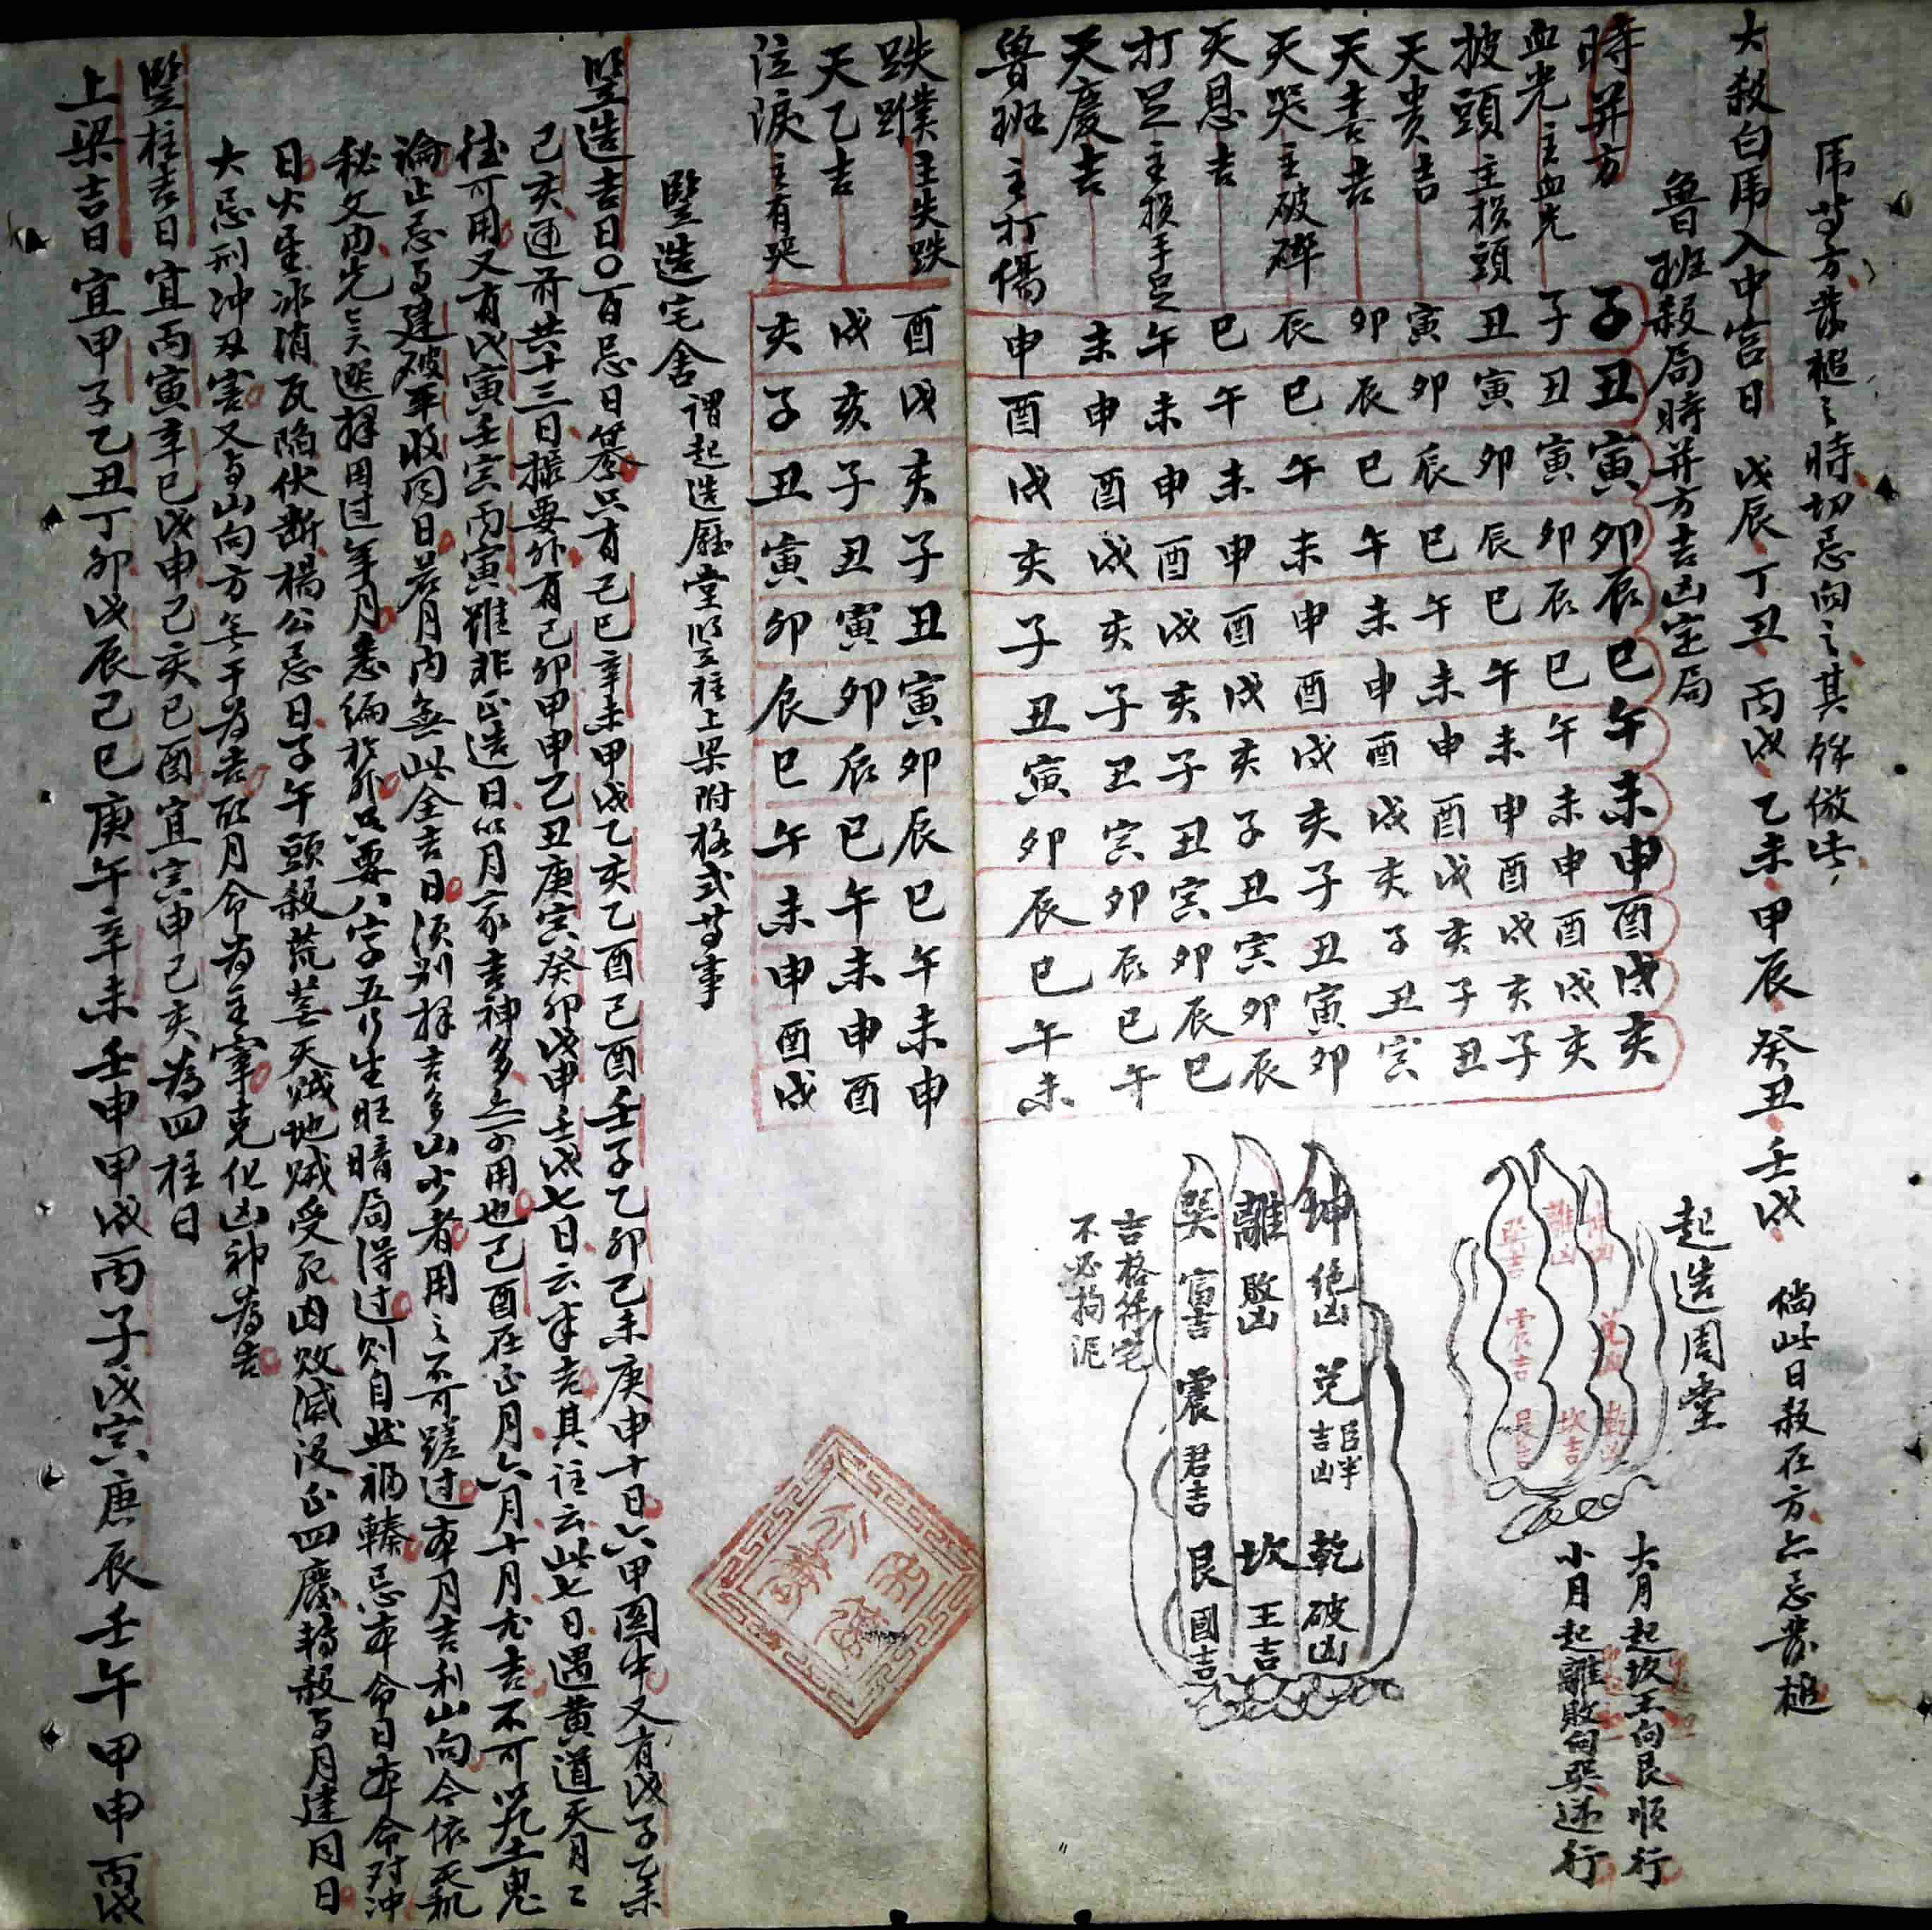 虎等方發槌之時切忌向之其餘倣此
大殺白虎入中宮日 戊辰丁丑丙戌乙未甲辰癸丑壬戌 倘此日殺在方亦忌發槌
魯班殺局時并方吉凶定局
時并方 子丑寅卯辰巳午未申酉戌亥
血光主血光 子丑寅卯辰巳午未申酉戌亥
披頭主損頭 丑寅卯辰巳午未申酉戌亥子
天貴吉 寅卯辰巳午未申酉戌亥子丑
天喜吉 卯辰巳午未申酉戌亥子丑寅
天哭主破碎 辰巳午未申酉戌亥子丑寅卯
天恩吉 巳午未申酉戌亥子丑寅卯辰
打足主損手足 午未申酉戌亥子丑寅卯辰巳
天慶吉 未申酉戌亥子丑寅卯辰巳午
魯班主打傷 申酉戌亥子丑寅卯辰巳午未
起造周堂
大月起坎王向艮順行
小月起離敗向巽逆行
坤凶 兌 乾凶
離凶 坎吉
巽吉 震吉 艮吉
坤絕凶 兌臣半吉凶 乾破凶
離敗凶 坎王吉
巽富吉 震君吉 艮國吉
吉格符宅
不必拘泥
跌蹼主失跌 酉戌亥子丑寅卯辰巳午未申
天乙吉 戌亥子丑寅卯辰巳午未申酉
泣淚主有哭 亥子丑寅卯辰巳午未申酉戌
豎造宅舍謂起造廳堂豎柱上梁附格式等事
豎造吉日〇百忌日纂只有己巳辛未甲戌乙亥乙酉己酉壬子乙卯己未庚申十日六甲圖中又有戊子乙未
己亥通前共十三日撮要外有己卯甲申乙丑庚寅癸卯戊申壬戌七日云年吉其註云此七日遇黃道天月二
德可用又有戊寅壬寅丙寅雖非正造日以月家吉神多亦可用也己酉在正月六月十月尤吉不可以九土鬼
論止忌与建破平收同日若月内無此全吉日須別擇吉多凶少者用之不可蹉过本月吉利山向今依天机
秘文由先亡夭遯擇用过年月悉编於外只要八字五行生旺暗局得过则自然禍轉忌本命日本命对冲
日火星冰消瓦陷伏断楊公忌日子午頭殺荒蕪天賊地賊受死凶敗滅沒正四廢轉殺与月建同日
大忌刑冲刃害又与山向方無干为吉取月命为主宰克化凶神为吉
豎柱吉日宜丙寅辛巳戊申己亥己酉宜寅申己亥為四柱日
上梁吉日宜甲子乙丑丁卯戊辰己巳庚午辛未壬申甲戌丙子戊寅庚辰壬午甲申丙戌